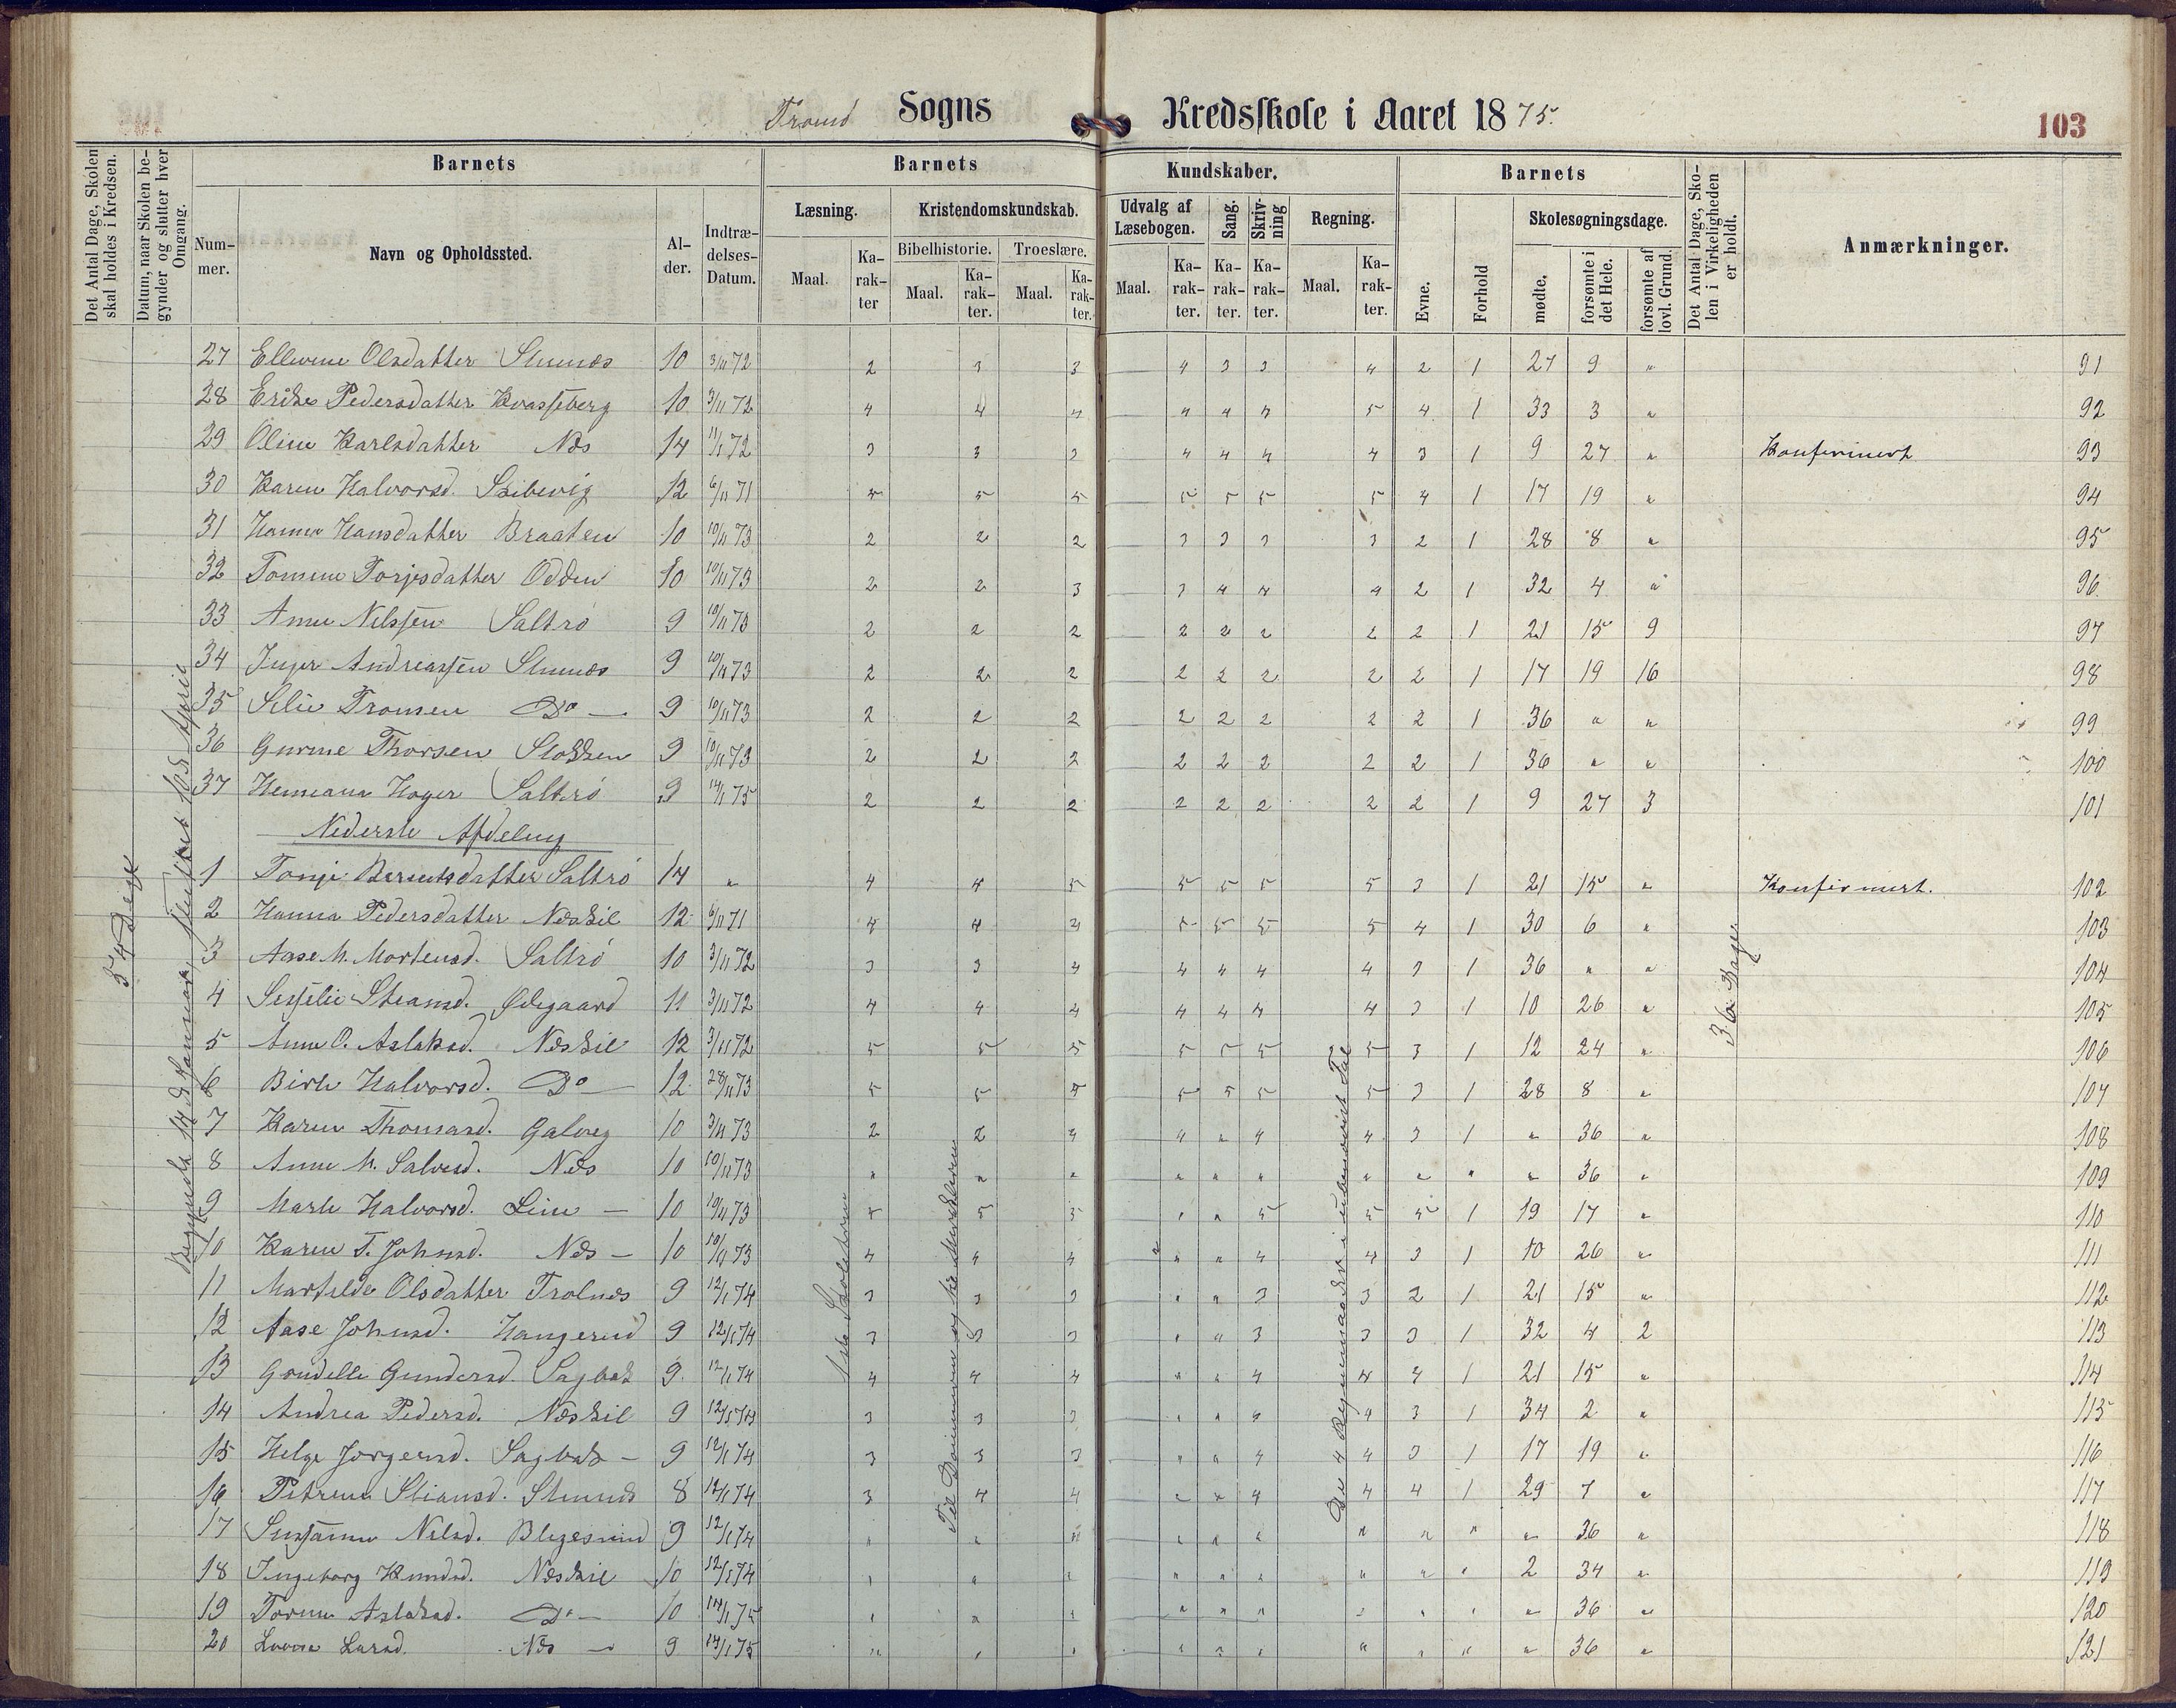 Sogns Kredsskole i Aaret 1875.
103
Det Antal Dage, Skolen skal holdes i Kredsen.
Datum, naar Skolen begynder og slutter hver Omgang.
Barnets
Barnets
Kundskaber.
Barnets
Det Antal Dage, Skolen i Virkeligheden er holdt.
Anmærkninger.
Nummer.
Navn og Opholdssted.
Alder.
Indtrædelses-Datum.
Læsning.
Kristendomskundskab.
Udvalg af Læsebogen.
Sang.
Skrivning
Regning.
Evne.
Forhold
Skolesøgningsdage.
Bibelhistorie.
Troeslære.
Maal.
Karakter
Maal.
Karakter.
Maal.
Karakter.
Maal.
Karakter.
Karakter.
Karakter.
Maal.
Karakter.
mødte.
forsømte i det Hele.
forsømte af lovl. Grund.
27 Ellevine Olsdatter 10 3/11 72 2 3 3 4 3 3 4 2 1 27 9 " 91
28 Pedersdatter Kvasseberg 10 3/11 72 4 4 4 4 4 4 5 4 1 33 3 " 92
29 Oline Karlsdatter Næs 14 11/1 72 3 3 3 4 4 4 4 3 1 9 27 " Konfirmert 93
30 Karen Halvorsd. Skibevig 12 6/11 71 5 5 5 5 5 5 5 4 1 17 19 " 94
31 Hansdatter Braaten 10 10/11 73 2 2 2 3 3 3 3 2 1 28 8 " 95
32 Tomine Torjesdatter Odden 10 10/11 73 2 2 3 3 4 4 4 2 1 32 4 " 96
33 Anne Nilssen Saltrö 9 10/11 73 2 2 2 2 2 2 2 2 1 21 15 9 97
34 Inger Andreassen 9 10/11 73 2 2 2 2 2 2 2 2 1 17 19 16 98
35 Silie Tromsen Do — 9 10/11 73 2 2 2 2 2 2 2 2 1 36 " " 99
36 Gurine Thorsen Stokken 9 10/11 73 2 2 2 2 2 2 2 2 1 36 " " 100
37 Hemeana Hoyer Saltrö 9 14/1 75 2 2 2 2 2 2 2 2 1 9 27 3 101
Nederste Afdeling
1 Tonje Berentsdatter Saltrö 14 " 4 4 5 5 5 5 5 3 1 21 15 " Konfirmert. 102
2 Hanna Pedersdatter Næskil 12 6/11 71 4 4 4 5 5 5 5 4 1 30 6 " 103
3 Aase M. Mortensd. Saltrö 10 3/11 72 3 3 4 4 4 4 4 3 1 36 " " 104
4 Sissilie Steansd. Ødegaard 11 3/11 72 4 4 4 4 4 4 4 3 1 10 26 " 105
5 Anne O. Aslaksd. Næskil 12 3/11 72 5 5 5 5 5 5 5 3 1 12 24 " 106
6 Birte Halvorsd. Do — 12 28/11 73 5 5 5 5 5 5 5 3 1 28 8 " 107
7 Karen Thomasd. Galvig 10 3/11 73 2 2 4 4 " 4 4 3 1 " 36 " 108
8 Anne M. Salvesd. Næs 10 10/11 73 " " " " " " " " " " 36 " 109
9 Marte Halvorsd. Line — 10 10/11 73 5 5 5 " " 5 5 5 1 19 17 " 110
10 Karen T. Johnsd. Næs — 10 10/11 73 4 4 4 " " 4 4 3 1 10 26 " 111
11 Martilde Olsdatter Trolnæs 9 12/1 74 3 3 3 " " 3 3 2 1 21 15 " 112
12 Aase Johnsd. Hangerud 9 12/1 74 3 3 3 " " 3 3 3 1 32 4 2 113
13 Gundersd. Sagbæk 9 12/1 74 4 4 4 " " 4 4 4 1 21 15 " 114
14 Andrea Pedersd. Næskil 9 12/1 74 3 3 3 " " 4 4 3 1 34 2 " 115
15 Helge Jorgensd. Sagbæk — 9 12/1 74 3 3 3 " " 4 4 3 1 17 19 " 116
16 Petrine Stiansd. 8 12/1 74 3 4 4 " " 4 4 4 1 29 7 " 117
17 Susanne Nilsd. 9 12/1 74 " " " " " " " " " " 36 " 118
18 Ingeborg Knudsd. Næskil 10 12/1 74 " " " " " " " " " 2 34 " 119
19 Torine Aslaksd. Do — 10 14/1 75 " " " " " " " " " " 36 " 120
20 Larsd. Næs — 9 14/1 75 " " " " " " " " " " 36 " 121
36 Dage
De 4 Regningsarter i ubenævnt Tal